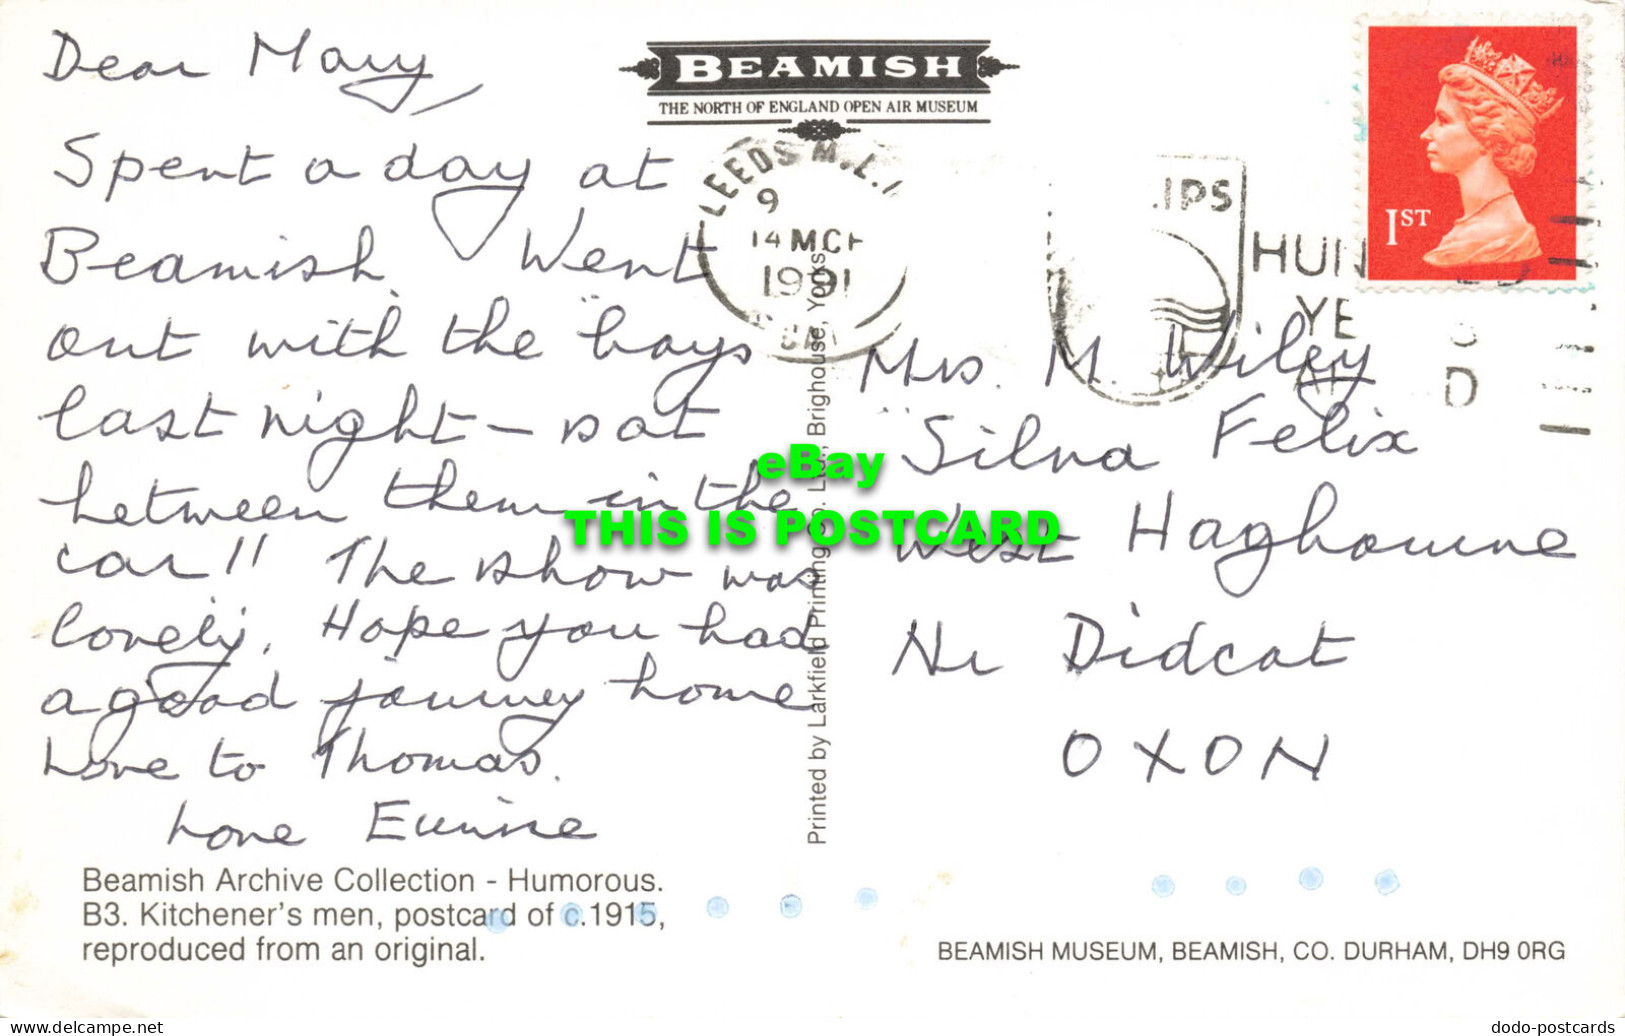 Dear Mary,
Spent a day at
Beamish. Went
out with the "boys"
last night – sat
between them in the
car!! The show was
lovely. Hope you had
a good journey home
Love to Thomas.
Love Eunice
Beamish Archive Collection - Humorous.
B3. Kitchener's men, postcard of c.1915,
reproduced from an original.
BEAMISH
THE NORTH OF ENGLAND OPEN AIR MUSEUM
LEEDS
9
14 MCH
1991
Printed by Larkfield Printing Co. Ltd., Brighouse, Yorks.
1ST
Mrs. M. Wiley
"Silva Felix
West Hagbourne
Nr Didcot
OXON
BEAMISH MUSEUM, BEAMISH, CO. DURHAM, DH9 0RG
eBay
THIS IS POSTCARD
dodo-postcards